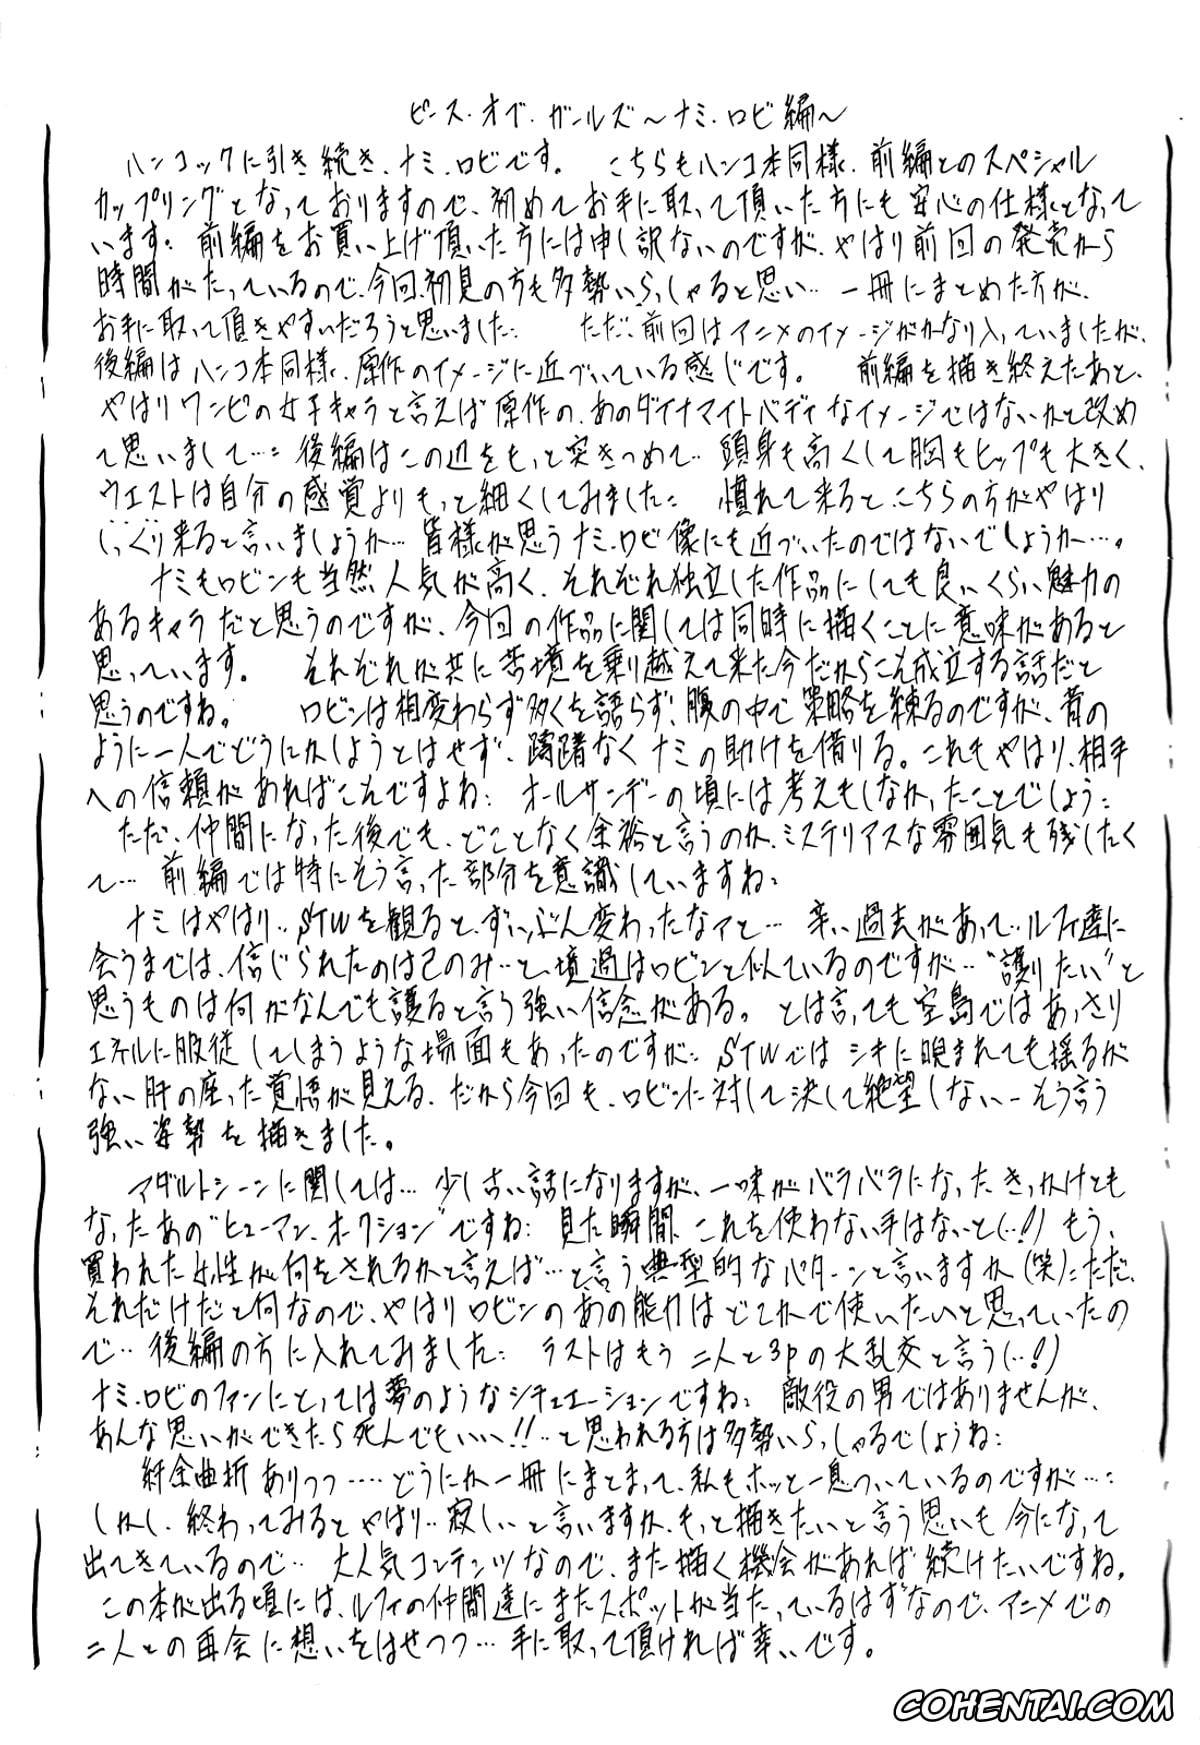 ピース・オブ・ガールズ～ナミ・ロビ編～
ハンコックに引き続き、ナミ・ロビです。 こちらもハンコ本同様、前編とのスペシャル
カップリングとなっておりますので、初めてお手に取って頂いた方にも安心の仕様となって
います。 前編をお買い上げ頂いた方には申し訳ないのですが、やはり前回の発売から
時間がたっているので、今回、初見の方も多勢いらっしゃると思い… 一冊にまとめた方が、
お手に取って頂きやすいだろうと思いました： ただ、前回はアニメのイメージがかなり入っていましたが、
後編はハンコ本同様、原作のイメージに近づいている感じです。 前編を描き終えたあと、
やはりワンピの女子キャラと言えば原作の、あのダイナマイトバディなイメージではないかと改め
て思いまして…： 後編はこの辺をもっと突きつめて‥ 頭身も高くして胸もヒップも大きく、
ウエストは自分の感覚よりもっと細くしてみました： 慣れて来ると、こちらの方がやはり
しっくり来ると言いましょうか… 皆様が思うナミ・ロビ像にも近づいたのではないでしょうか…。
ナミもロビンも当然人気が高く、それぞれ独立した作品にしても良いくらい魅力の
あるキャラだと思うのですが、今回の作品に関しては同時に描くことに意味があると
思っています。 それぞれが共に苦境を乗り越えて来た今だからこそ成立する話だと
思うのですね。 ロビンは相変わらず多くを語らず、腹の中で策略を練るのですが、昔の
ように一人でどうにかしようとはせず、躊躇なくナミの助けを借りる。これもやはり、相手
への信頼があればこそですよね： オールサンデーの頃には考えもしなかったことでしょう：
ただ、仲間になった後でも、どことなく余裕と言うのか、ミステリアスな雰囲気も残したく
て… 前編では特にそう言った部分を意識していますね：
ナミはやはり‥STWを観ると、ずいぶん変わったなァと… 辛い過去があって‥ルフィ達に
会うまでは、信じられたのは己のみ‥と、境遇はロビンと似ているのですが‥“護りたい”と
思うものは何がなんでも護ると言う強い信念がある。 とは言っても空島ではあっさり
エネルに服従してしまうような場面もあったのですが： STWではシキに睨まれても揺るが
ない肝の座った覚悟が見える、だから今回も、ロビンに対して決して絶望しない－そう言う
強い姿勢を描きました。
アダルトシーンに関しては… 少し古い話になりますが、一味がバラバラになったきっかけとも
なったあの“ヒューマン・オークション”ですね： 見た瞬間、これを使わない手はないと(…!) もう、
買われた女性が何をされるかと言えば…と言う典型的なパターンと言いますか(笑)： ただ、
それだけだと何なので、やはりロビンのあの能力はどこかで使いたいと思っていたの
で‥ 後編の方に入れてみました： ラストはもう二人と3Pの大乱交と言う(…!)
ナミ・ロビのファンにとっては夢のようなシチュエーションですね： 敵役の男ではありませんが、
あんな思いができたら死んでもいい!!‥と思われる方は多勢いらっしゃるでしょうね：
紆余曲折ありつつ‥‥どうにか一冊にまとまって、私もホッと一息ついているのですが…：
しかし、終わってみるとやはり‥寂しいと言いますか、もっと描きたいと言う思いも今になって
出てきているので‥ 大人気コンテンツなので、また描く機会があれば続けたいですね。
この本が出る頃には、ルフィの仲間達にまたスポットが当たっているはずなので、アニメでの
二人との再会に想いをはせつつ… 手に取って頂ければ幸いです。
COHENTAI.COM